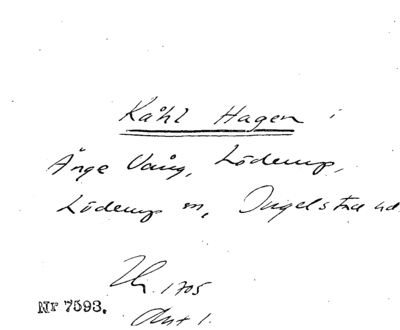 Kåhl Hagen i
Änge Vång, Löderup,
Löderup sn, Ingelstad hd.
1705
Nr 7593.
Akt 1.